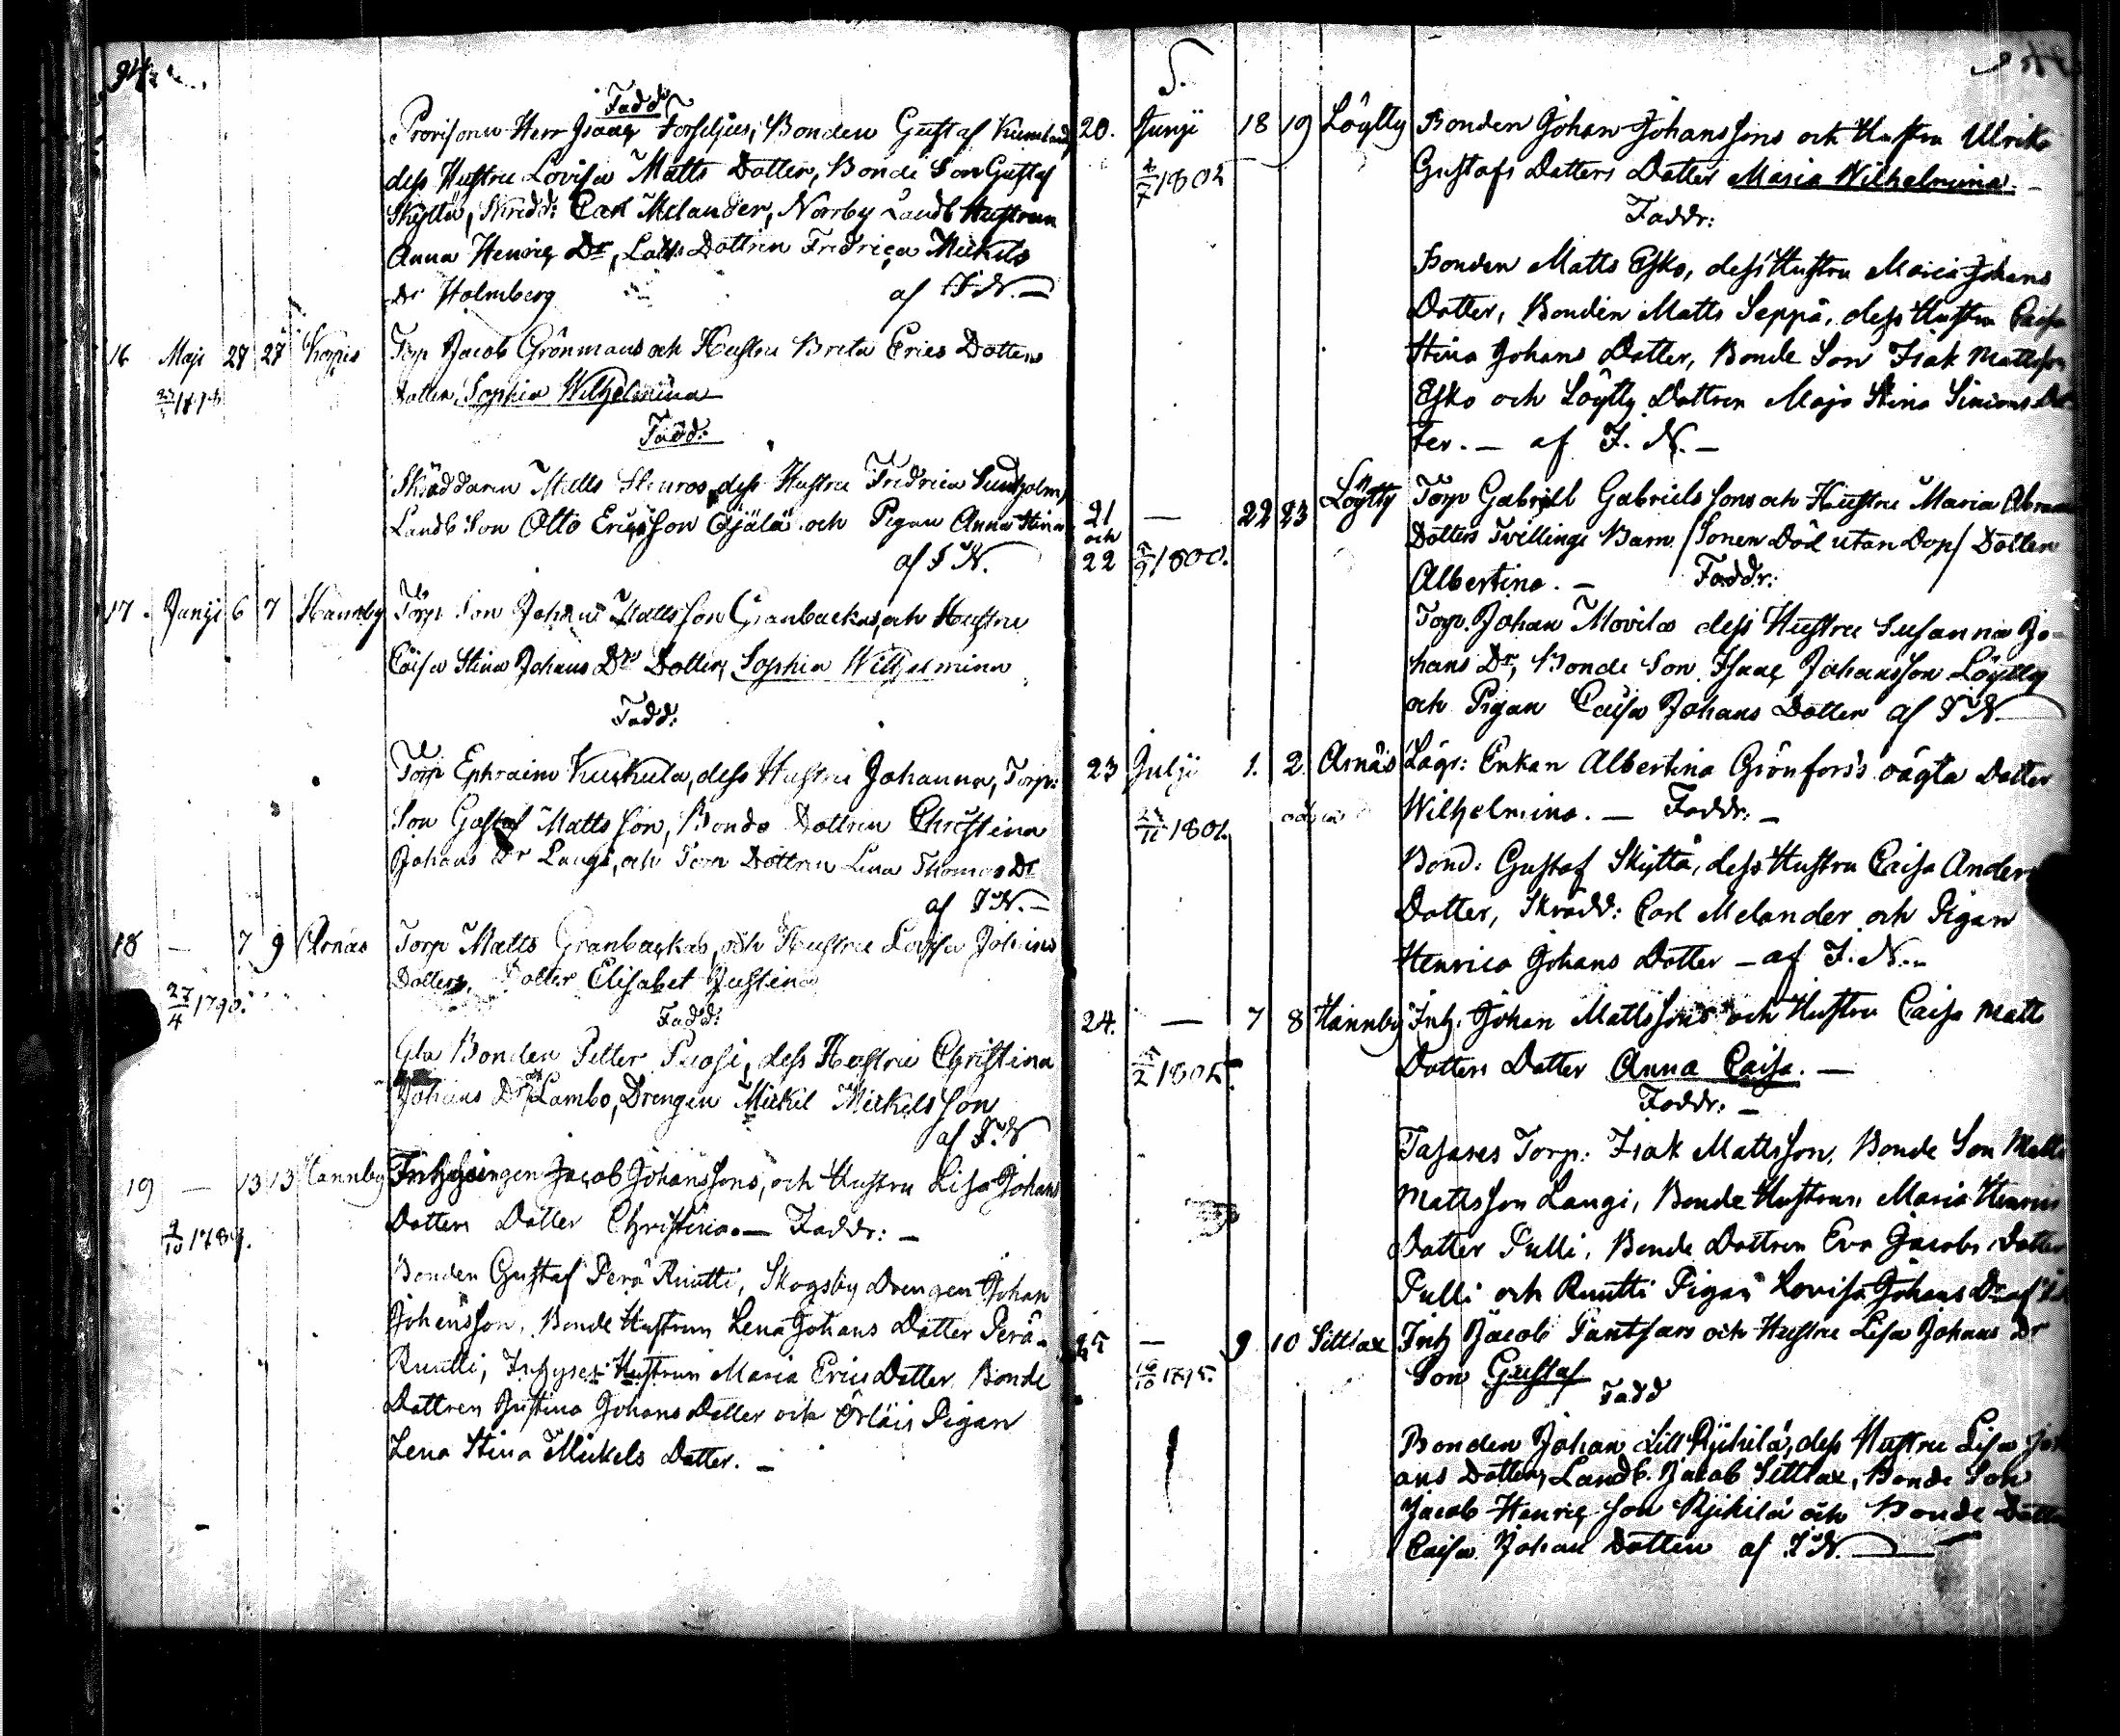 94.
Fadd:
Provisorn Herr Isaac Forselius, Bonden Gustaf
dess Hustru Lovisa Matts Dotter, Bonde Son Gustaf
Skyttä, Skrädd: Carl Melander, Norrby Landb Hustrun
Anna Henric Dr, Landb Dottren Fredrica Mickels
Dr Holmberg af I N.—
16 Maji 27 27 Korpis Torp Jacob Grönmans och Hustru Brita Erics Dotters
Dotter Sophia Wilhelmina
Fadd:
Skräddaren Matts Skuros, dess Hustru Fredrica Sundholm,
Landb Son Otto Ericsson Öjälä och Pigan Anna Stina
af I N.
17. Junji 6 7 Hannby Torp Son Johan Matts Son Granbackas, och Hustru
Caisa Stina Johans Drs Dotter, Sophia Wilhelmina
Fadd:
Torp Ephraim Kuskula, dess Hustru Johanna, Torp:
Son Gustaf Matts Son, Bonde Dottren Christina
Johans Dr Laugi, och Torp Dottren Lena Thomas Dr
af I N.—
18 — 7 9 Arnäs Torp Matts Granbackas, och Hustru Lovisa Johans
27/4 1790. Dotters, Dotter Elisabet Justina
Fadd:
Gla Bonden Petter Puosi, dess Hustru Christina
Johans Dr Lambo, Drengen Mickel Mickels Son
af I. N
19 — 13 13 Hannby Inhysingen Jacob Johanssons, och Hustru Lisa Johans
Dotters Dotter Christina.— Faddr: —
Bonden Gustaf Perä Ruutti, Skogsby Drengen Johan
Johansson, Bonde Hustrun Lena Johans Dotter Perä-
Ruutti, Inhyses Hustrun Maria Erics Dotter, Bonde
Dottren Justina Johans Dotter och Örläis Pigan
Lena Stina Mickels Dotter. —
20. Junji 18 19 Löytty Bonden Johan Johanssons och Hustru Ulrika
Gustafs Dotters Dotter Maria Wilhelmina. —
Faddr:
Bonden Matts Esko, dess Hustru Maria Johans
Dotter, Bonden Matts Seppä, dess Hustru Caisa
Stina Johans Dotter, Bonde Son Isak Mattsson
Esko och Löytty Dottren Maja Stina Simons Dot-
ter. — af I. N. —
21 och 22 — 22 23 Löytty Torp Gabriell Gabriels Sons och Hustru Maria Abrams
Dotters Tvillinge Barn /Sonen Död utan Dop/ Dotter
Albertina. — Faddr:
Torp. Johan Movila dess Hustru Susanna Jo-
hans Dr, Bonde Son Isaac Johansson Löytty
och Pigan Caisa Johans Dotter af I N
23 Julji 1. 2. Arnäs Lägr: Enkan Albertina Grönfors's oägta Dotter
Wilhelmina. — Faddr: —
Bond: Gustaf Skyttä, dess Hustru Caisa Anders
Dotter, Skrädd: Carl Melander och Pigan
Henrica Johans Dotter — af I. N.—
24. — 7 8 Hannby Inh. Johan Mattssons och Hustru Caisa Matts
Dotters Dotter Anna Caisa. —
Faddr: —
Tasases Torp: Isak Mattsson, Bonde Son Matts
Mattsson Laugi, Bonde Hustrun Maria Henrics
Dotter Pulli, Bonde Dottren Eva Jacobs Dotter
Pulli och Ruutti Pigan Lovisa Johans Dr af
25 — 9 10 Sittlax Inh Jacob Pantsars och Hustru Lisa Johans Dr
Son Gustaf
Fadd
Bonden Johan Lill Rjihilä, dess Hustru Lisa Joh
ans Dotter, Landb. Jacob Sittlax, Bonde Son
Jacob Henric Son Rjihilä och Bonde Dottren
Caisa Johan Dotter af I N.